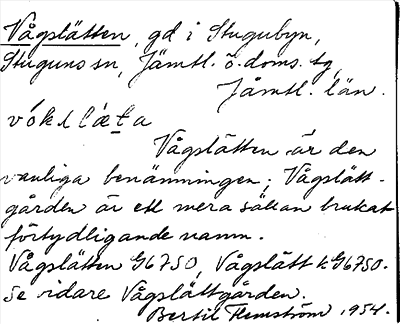 Vågslätten, gd i Stugubyn,
Stuguns sn, Jämtl. ö. doms. tg,
Jämtl. län.
vókslæ̀ta
Vågslätten är den
vanliga benämningen; Vågslätt-
gården är ett mera sällan brukat
förtydligande namn.
Vågslätten G6750, Vågslätt k G6750.
Se vidare Vågslättgården.
Bertil Flemström 1954.